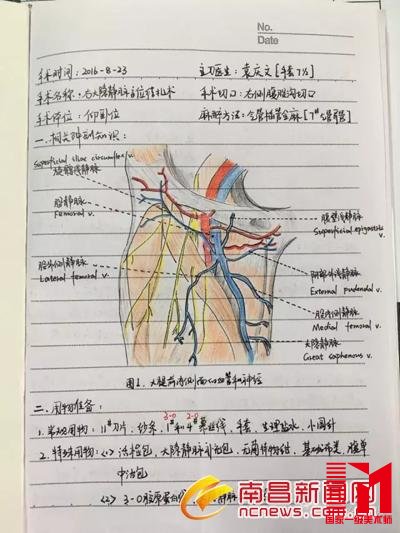 No.
Date
手术时间：2016-8-23 主刀医生：袁庆文[手套7½]
手术名称：右大隐静脉高位结扎术 手术切口：右侧腹股沟切口
手术体位：仰卧位 麻醉方法：全管插管全麻[7#管]
一、相关解剖知识：
Superficial iliac circumflex v.
旋髂浅静脉
股静脉
Femoral v.
股外侧静脉
Lateral femoral v.
腹壁浅静脉
Superficial epigastric v.
阴部外浅静脉
External pudendal v.
股内侧静脉
Medial femoral v.
大隐静脉
Great saphenous v.
图1. 大腿前内侧面(示)血管和神经
二、用物准备：
1. 常规用物：11#刀片、纱条、1#和4#慕丝线、手套、生理盐水、小圆针
3-0 2-0
2. 特殊用物：<1> 大隐静脉 基础 腹单
中治包
<2> 3-0胶原蛋白线
南昌新闻网
ncnews.com.cn
国家一级美术师